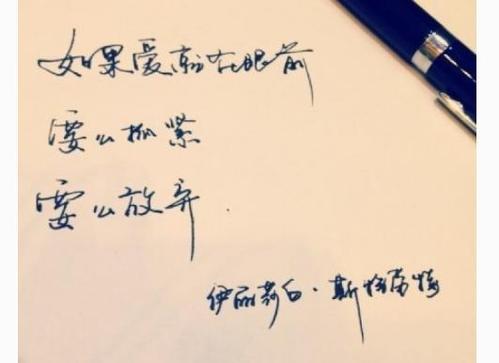 如果爱就在眼前
要么抓紧
要么放弃.
伊丽莎白·斯特劳特